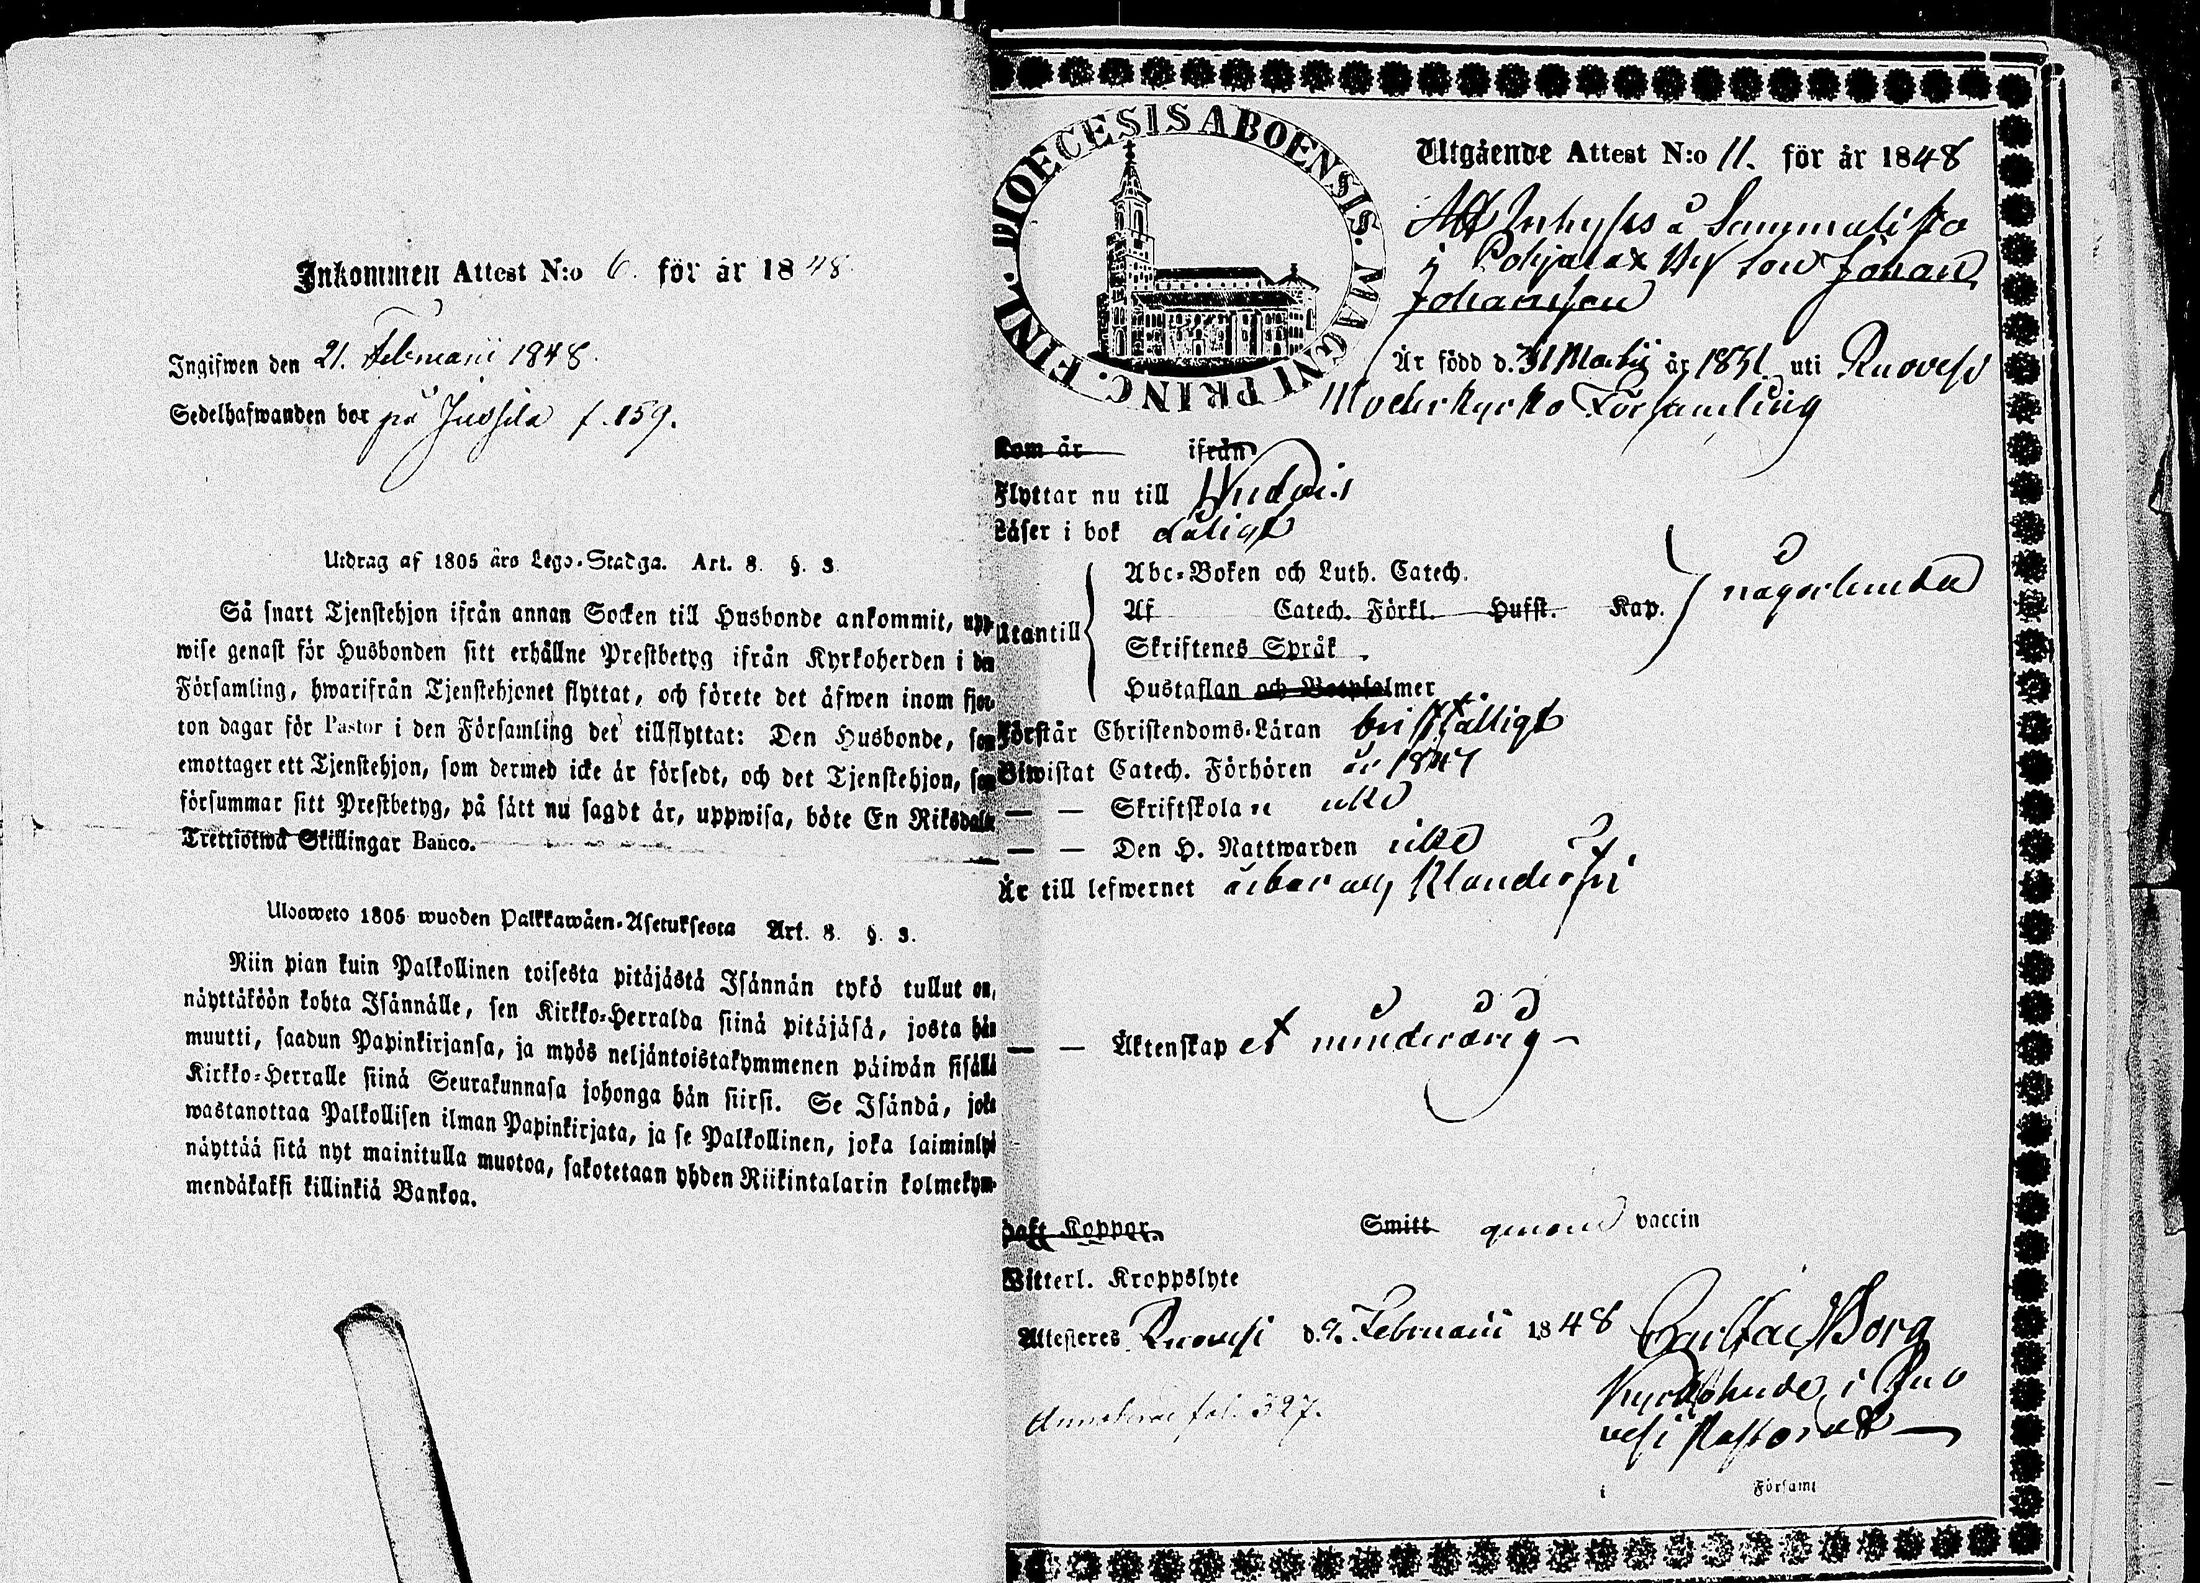 Inkommen Attest N:o 6. för år 1848.
Ingifwen den 21. Februarii 1848.
Sedelhafwanden bor på Jussila f. 159.
Utdrag af 1805 års Lego-Stadga. Art. 8. §. 3.
Så snart Tjenstehjon ifrån annan Socken till Husbonde ankommit, upp-
wise genast för Husbonden sitt erhållne Prestbetyg ifrån Kyrkoherden i den
Församling, hwarifrån Tjenstehjonet flyttat, och förete det äfwen inom fjor-
ton dagar för Pastor i den Församling det tillflyttat: Den Husbonde, som
emottager ett Tjenstehjon, som dermed icke är försedt, och det Tjenstehjon, som
försummar sitt Prestbetyg, på sätt nu sagdt är, uppwisa, böte En Riksdaler
Trettiotwå Skillingar Banco.
Ulosweto 1805 wuoden Palkkawäen-Asetuksesta Art. 8. §. 3.
Niin pian kuin Palkollinen toisesta pitäjästä Isännän tykö tullut on,
näyttäköön kohta Isännälle, sen Kirkko-Herralda siinä pitäjäsä, josta hän
muutti, saadun Papinkirjansa, ja myös neljäntoistakymmenen päiwän sisällä
Kirkko-Herralle siinä Seurakunnasa johonga hän siirsi. Se Isändä, joka
wastanottaa Palkollisen ilman Papinkirjata, ja se Palkollinen, joka laiminlyö
näyttää sitä nyt mainitulla muotoa, sakotetaan yhden Riikintalarin kolmekym-
mendäkaksi killinkiä Bankoa.
FINL. DIOECESIS ABOENSIS. MAGNI PRINC.
Utgående Attest N:o 11. för år 1848
Att Inhyses å Sammalisto
i Pohjala son Johan
Johansson
Är född d. 31 Martii år 1831 uti Ruovesi
Moderkyrko Församling
Kom år ifrån
Flyttar nu till
Läser i bok dåligt
Abc-Boken och Luth. Catech.
Af Catech. Förkl. Hufst. Kap.
Utantill
någorlunda
Skriftenes Språk
Hustaflan och Botpsalmer
Förstår Christendoms-Läran bristfälligt
Biwistat Catech. Förhören år 1847
— — Skriftskolan icke
— — Den H. Nattwarden icke
Är till lefwernet ärbar och klanderfri
— — Äktenskap et minderårig -
Haft Koppor. Smitt genom vaccin
Witterl. Kroppslyte
Attesteres Ruovesi d. 9. Februarii 1848 Gustaf Borg
Kyrkoherde i Ruo
vesi Pastorat —
fol. 327.
i Församl